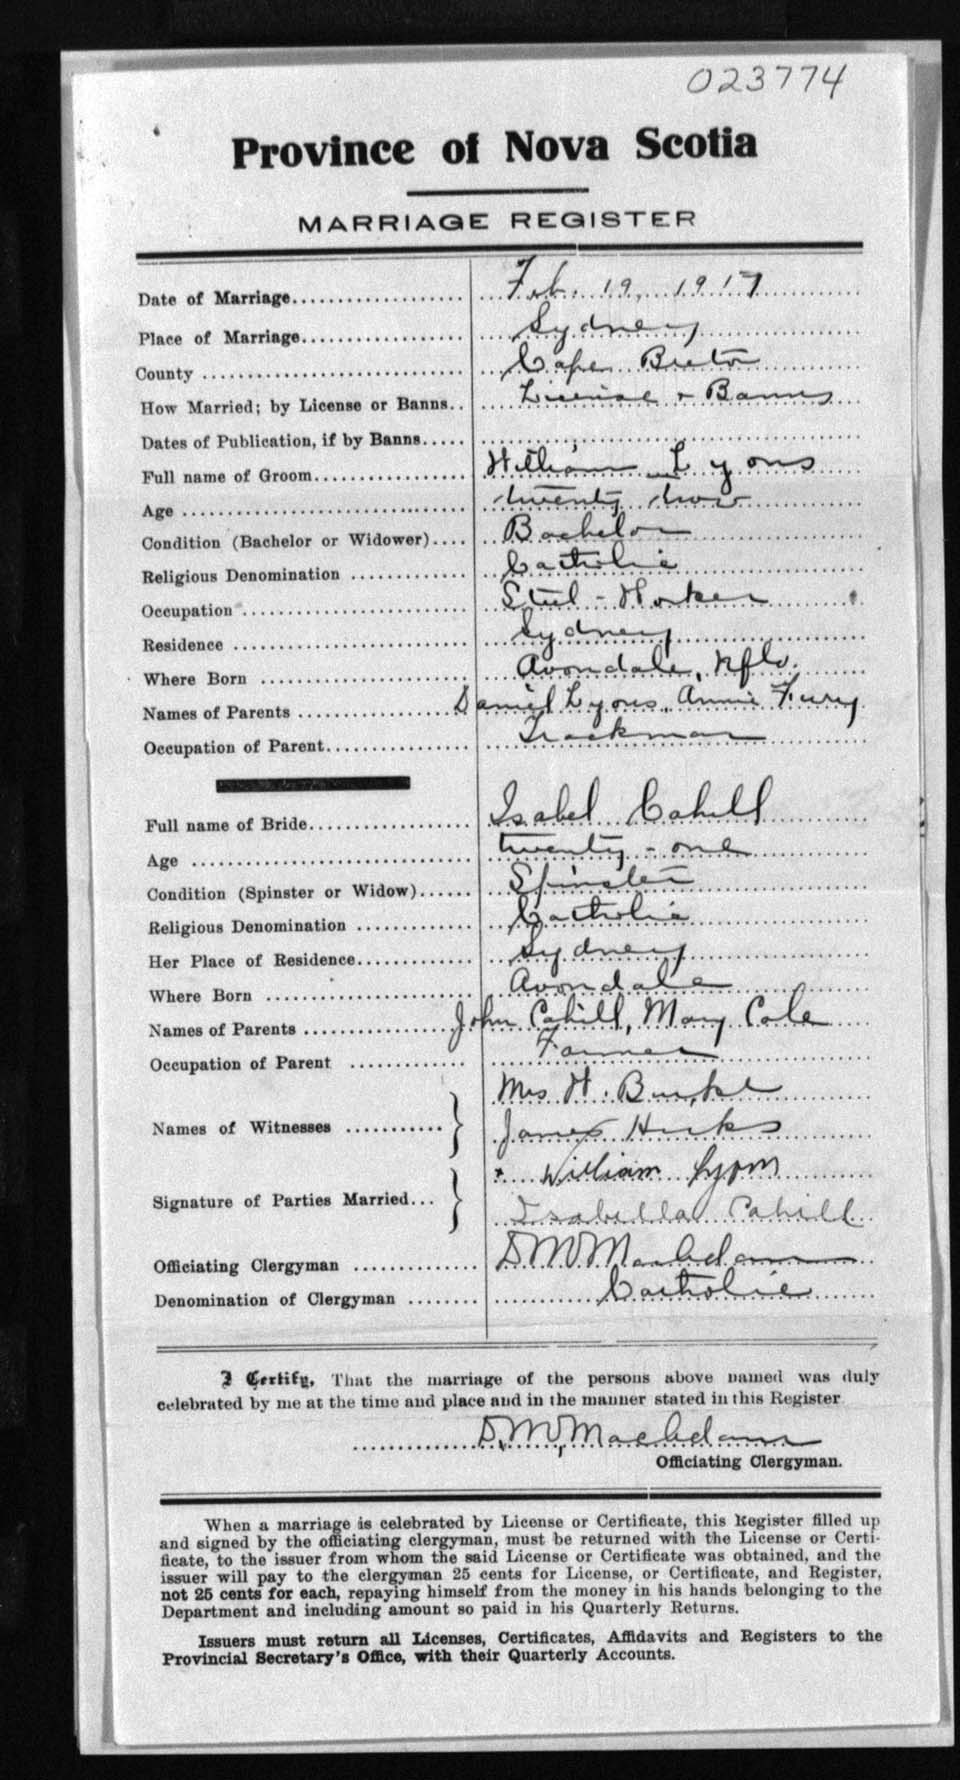 023774
Province of Nova Scotia
MARRIAGE REGISTER
Date of Marriage Feb. 19, 1917
Place of Marriage Sydney
County Cape Breton
How Married; by License or Banns License & Banns
Dates of Publication, if by Banns
Full name of Groom William Lyons
Age twenty two
Condition (Bachelor or Widower) Bachelor
Religious Denomination Catholic
Occupation Steel-Worker
Residence Sydney
Where Born Avondale, Nfld.
Names of Parents Daniel Lyons, Annie Fury
Occupation of Parent Trackman
Full name of Bride Isabel Cahill
Age twenty-one
Condition (Spinster or Widow) Spinster
Religious Denomination Catholic
Her Place of Residence Sydney
Where Born Avondale
Names of Parents John Cahill, Mary Cole
Occupation of Parent Farmer
Names of Witnesses Mrs H. Burke
James Hicks
Signature of Parties Married x William Lyons
Isabella Cahill
Officiating Clergyman D M MacAdam
Denomination of Clergyman Catholic
I Certify, That the marriage of the persons above named was duly
celebrated by me at the time and place and in the manner stated in this Register
D, M, MacAdam
Officiating Clergyman.
When a marriage is celebrated by License or Certificate, this Register filled up
and signed by the officiating clergyman, must be returned with the License or Certi-
ficate, to the issuer from whom the said License or Certificate was obtained, and the
issuer will pay to the clergyman 25 cents for License, or Certificate, and Register,
not 25 cents for each, repaying himself from the money in his hands belonging to the
Department and including amount so paid in his Quarterly Returns.
Issuers must return all Licenses, Certificates, Affidavits and Registers to the
Provincial Secretary's Office, with their Quarterly Accounts.